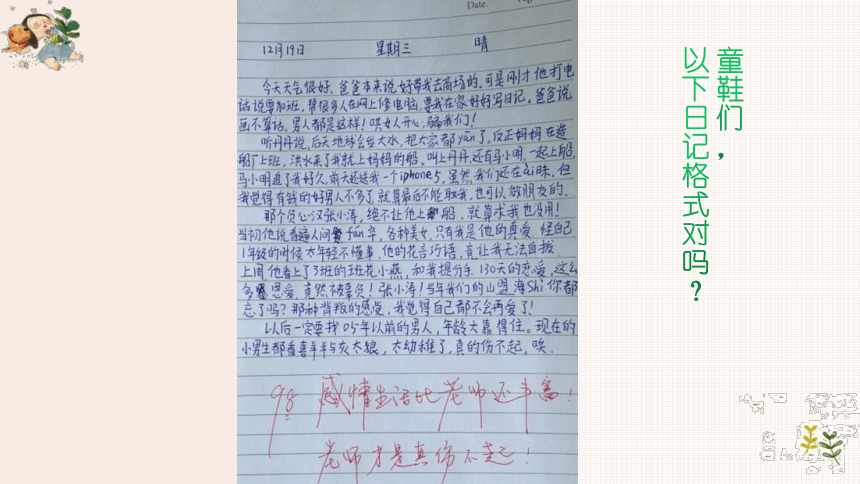 Date.
12月19日 星期三 晴
今天天气很好,爸爸本来说好带我去商场的,可是刚才他打电
话说要加班,帮很多人在网上修电脑,要我在家好好写日记,爸爸说
画不算话,男人都是这样!哄女人开心,骗我们!
听丹丹说,后天地球会发大水,把大家都yān了,反正妈妈在造
船厂上班,洪水来了我就上妈妈的船,叫上丹丹,还有马小明,一起上船,
马小明追了我好久,前天还送我一个iphone5,虽然我们还在ài昧,但
我觉得有钱的好男人不多了,就算最后不能取我,也可以做朋友的。
那个负心汉张小涛,绝不让他上船,就算求我也没用!
当初他说看遍人间fán华,各种美女,只有我是他的真爱,怪自己
1年级的时候太年轻不懂事,他的花言巧语,竟让我无法自拔
上周,他看上了3班的班花小燕,和我提分手,130天的恋爱,这么
多恩爱,竟然被辜负!张小涛!当年我们的山盟海Shì你都
忘了吗?那种背叛的感觉,我觉得自己都不会再爱了!
以后一定要找05年以前的男人,年龄大靠得住。现在的
小男生都看喜羊羊与灰太狼,太幼稚了,真的伤不起,唉。
98 感情生活比老师还丰富!
老师才是真伤不起!
童鞋们,
以下日记格式对吗?